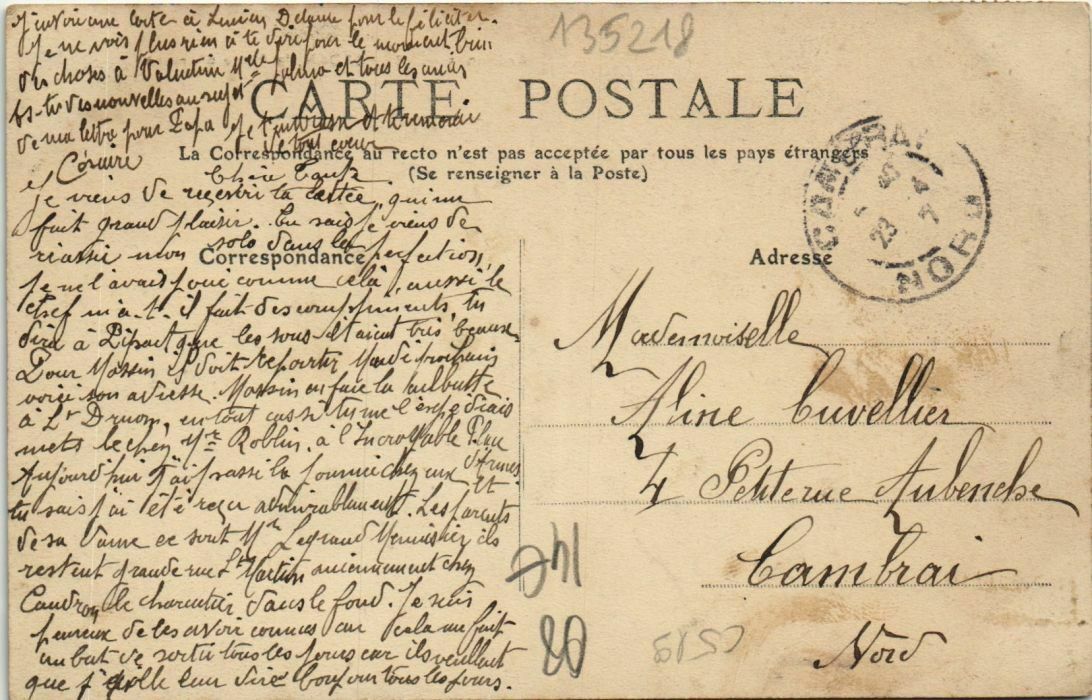 135218
CARTE POSTALE
La Correspondance au recto n'est pas acceptée par tous les pays étrangers
(Se renseigner à la Poste)
Correspondance
Adresse
CAMBRAI
23 7
NORD
Chère Tante
Je viens de recevoir ta carte, qui me
fait grand plaisir. Tu sais je viens de
réussir mon solo dans la perfection,
je ne l'avais joué comme celà, aussi le
chef m'a-t-il fait des compliments, tu
diras à que les sous étaient très beaux.
Pour Massin il doit repartir Mardi prochain
voici son adresse Massin en face la
à Lr Druon, en tout cas si tu me l'expédiais
mets le chez Mr Roblin, à l'Incroyable Place
d'Armes
Aujourd'hui j'ai passé la journée chez eux et
tu sais j'ai été reçu admirablement. Les parents
de sa dame ce sont Mr Legrand Menuisier ils
restent grande rue St Martin anciennement chez
Caudron le charcutier dans le fond. Je suis
heureux de les avoir connus car cela me fait
un but de sortie tous les jours car ils veullent
que j'aille leur dire bonjour tous les jours.
J'envoie une carte à Lucien pour le féliciter.
Je ne vois plus rien à te dire pour le moment bien
des choses à Valentin Mme et tous les amis
as-tu des nouvelles au sujet
de ma lettre pour Papa Je t'embrasse
de tout coeur
Mademoiselle
Aline Cuvellier
4 Petite rue Aubenche
Cambrai
Nord
80
5150